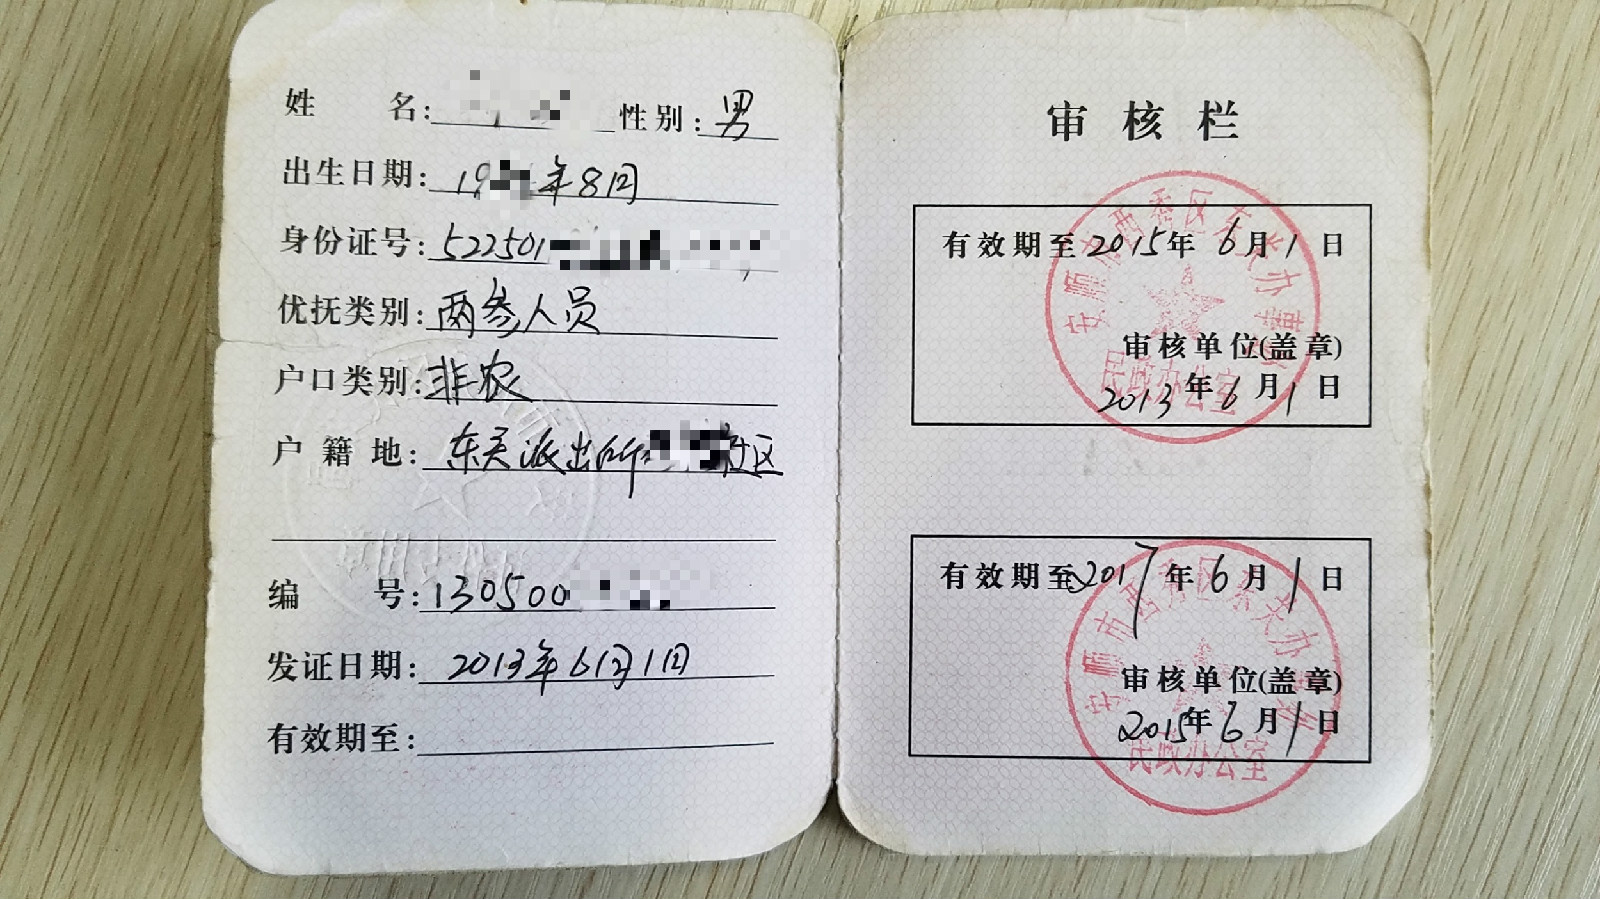 姓 名: 性别:男
出生日期:19 年8月
身份证号:522501
优抚类别:两参人员
户口类别:非农
户籍地:东关派出所 社区
编 号:130500
发证日期:2013年6月1日
有效期至:
审核栏
有效期至2015年6月1日
安顺市西秀区东关办事处
审核单位(盖章)
民政办公室
2013年6月1日
有效期至2017年6月1日
安顺市西秀区东关办事处
审核单位(盖章)
2015年6月1日
民政办公室